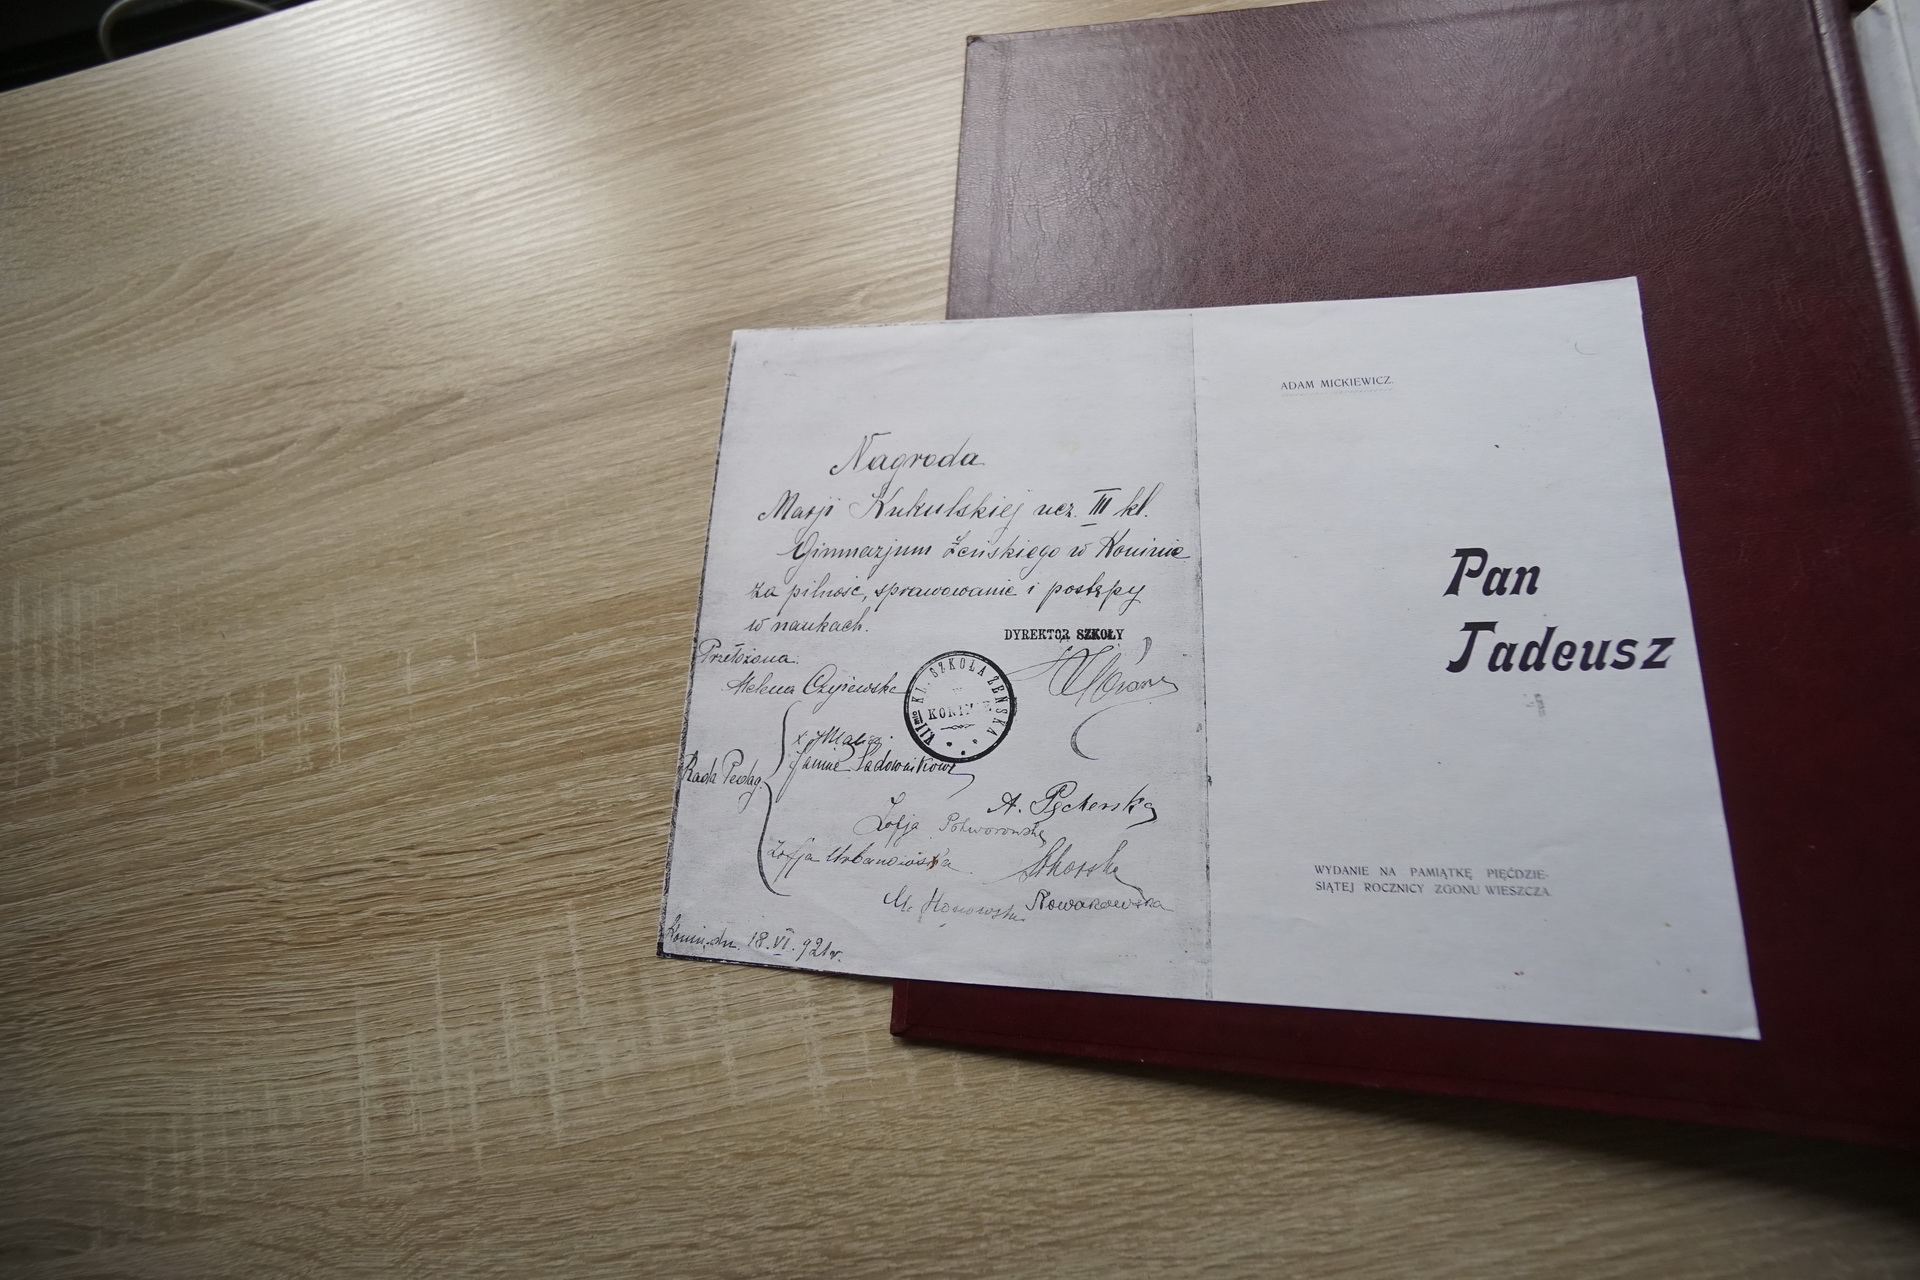 Nagroda
Marji Kukulskiej ucz. III kl.
Gimnazjum Żeńskiego w Koninie
za pilność, sprawowanie i postępy
w naukach.
Przełożona
Helena Czyżewska
DYREKTOR SZKOŁY
VII KL. SZKOŁA ŻEŃSKA
KONINIE
Rada Pedag.
Janina Sadownikowa
A. Pęcherska
Zofja Potworowska
Zofja Urbanowska.
Nowakowska
Konin, dn. 18.VI.921 r.
ADAM MICKIEWICZ.
Pan
Tadeusz
WYDANIE NA PAMIĄTKĘ PIĘĆDZIE-
SIĄTEJ ROCZNICY ZGONU WIESZCZA.